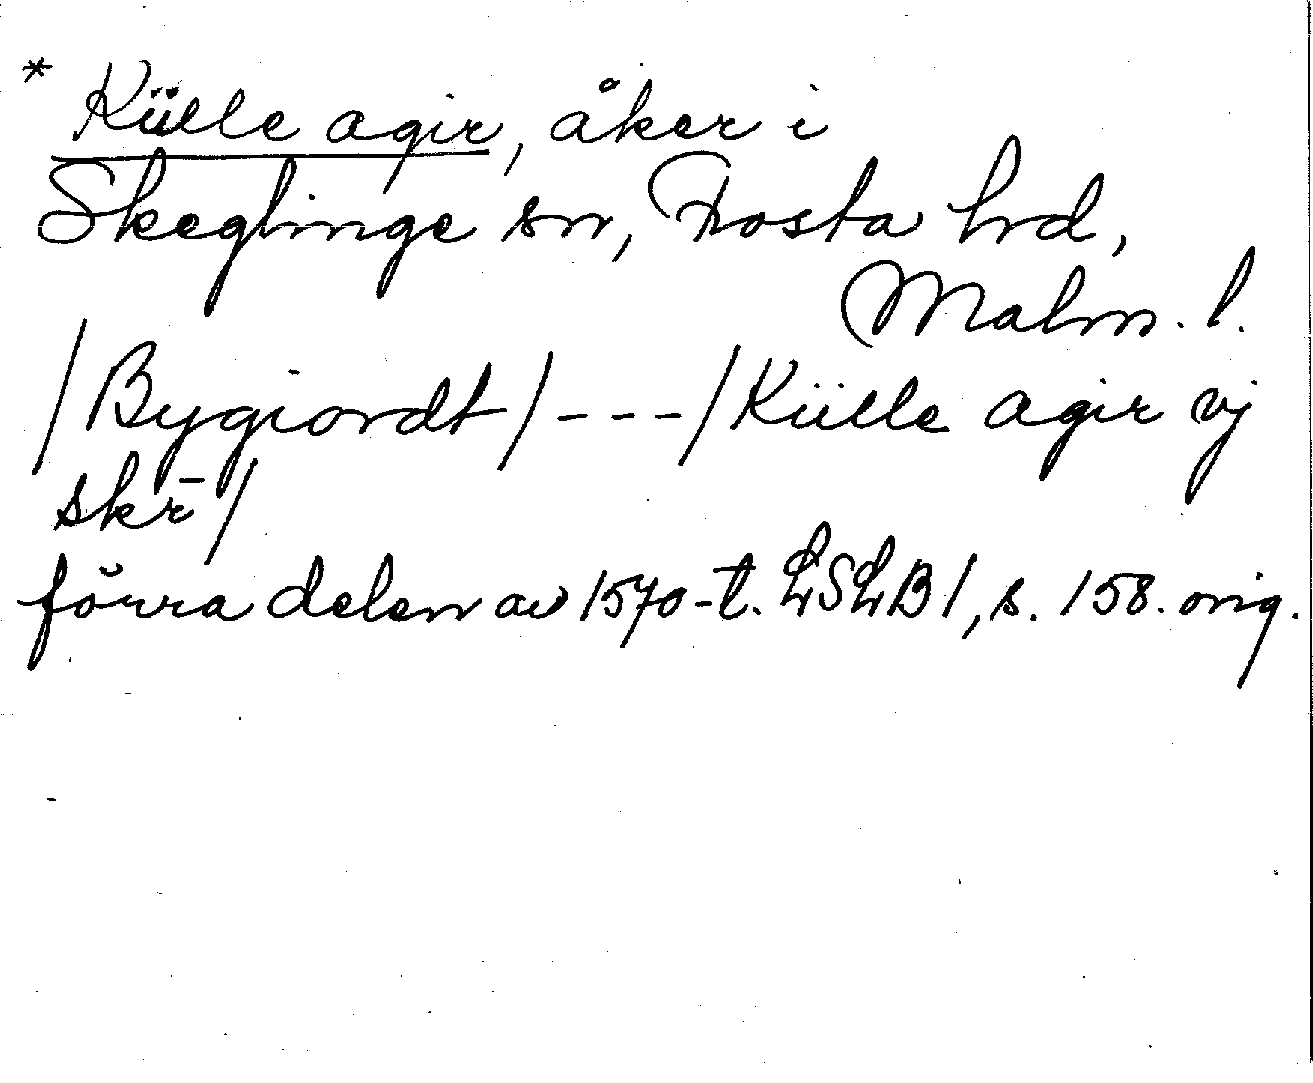 * Külle agir, åker i
Skeglinge sn, Frosta hd,
Malm. l.
/Bygiordt/---/Külle agir vj
skr̄/
förra delen av 1570-t. LSLB 1, s. 158. orig.